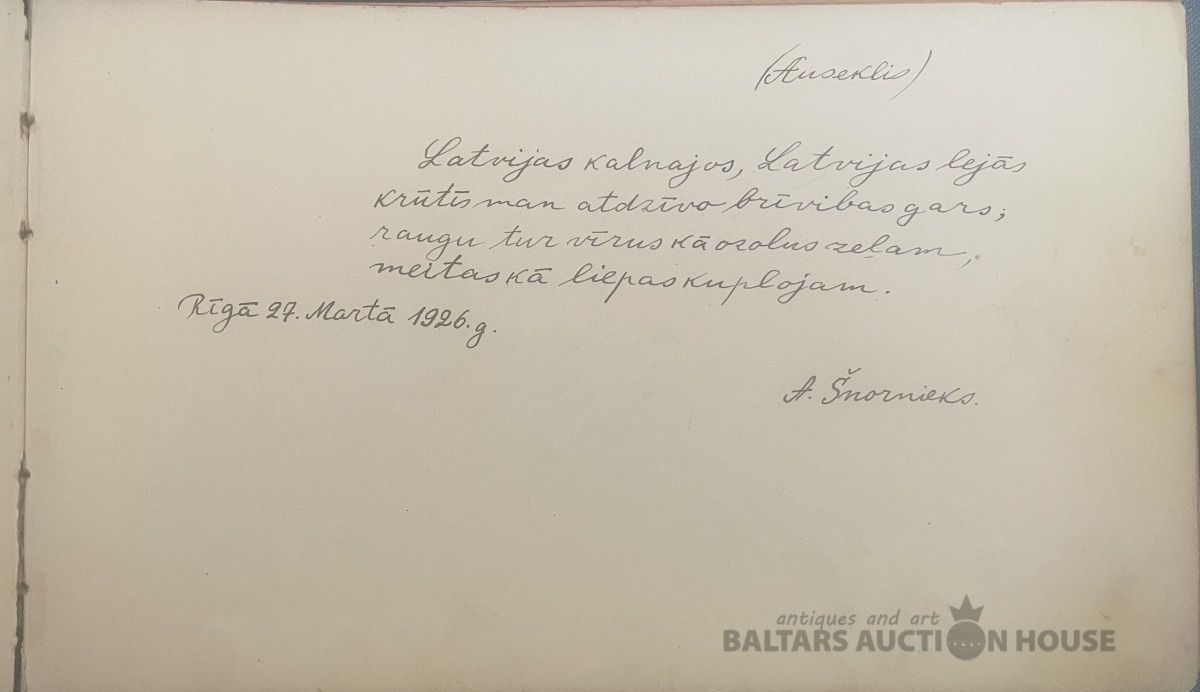 (Auseklis)
Latvijas kalnajos, Latvijas lejās
krūtīs man atdzīvo brīvibas gars;
raugu tur vīrus kā ozolus zeļam,
meitas kā liepas kuplojam.
Rīgā 27. Martā 1926. g.
A. Šnornieks.
antiques and art
BALTARS AUCTION HOUSE